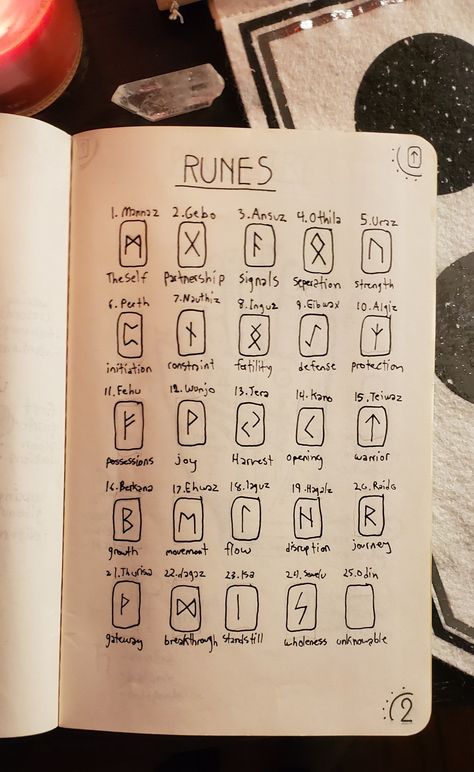 RUNES
1. Mannaz 2. Gebo 3. Ansuz 4. Othila 5. Uraz
ᛗ ᚷ ᚨ ᛟ ᚢ
The self Partnership signals seperation strength
6. Perth 7. Nauthiz 8. Inguz 9. Eihwaz 10. Algiz
ᛈ ᚾ ᛝ ᛇ ᛉ
initiation constraint fertility defense protection
11. Fehu 12. Wunjo 13. Jera 14. Kano 15. Teiwaz
ᚠ ᚹ ᛃ ᚲ ᛏ
possessions joy Harvest opening warrior
16. Berkana 17. Ehwaz 18. laguz 19. Hagalz 20. Raido
ᛒ ᛖ ᛚ ᚺ ᚱ
growth movement flow disruption journey
21. Thurisa 22. dagaz 23. Isa 24. Sowelu 25. Odin
ᚹ ᛞ ᛁ ᛋ
gateway breakthrough standstill wholeness unknowable
2